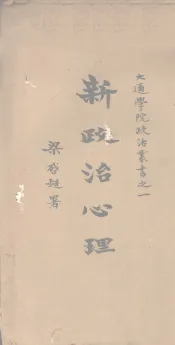 大通學院政治叢書之一
新政治心理
梁啟超署